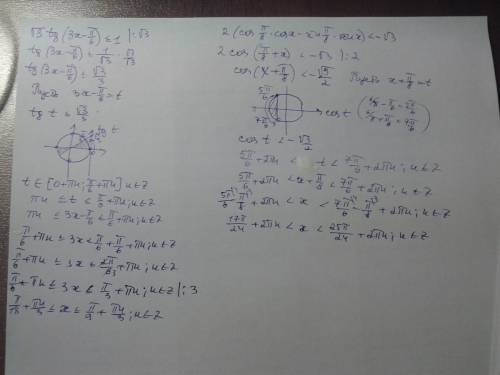 √3 tg(3x-π/6) ≤ 1 |:√3
tg(3x-π/6) ≤ 1/√3 · √3/√3
tg(3x-π/6) ≤ √3/3
Пусть 3x-π/6=t
tg t ≤ √3/3
tg t
t ∈ [0+πn; π/6+πn] n∈Z
πn ≤ t < π/6+πn; n∈Z
πn ≤ 3x-π/6 ≤ π/6+πn; n∈Z
π/6+πn ≤ 3x < π/6+π/6+πn; n∈Z
π/6+πn ≤ 3x ≤ 2π/6 3+πn; n∈Z
π/6+πn ≤ 3x < π/3+πn; n∈Z |:3
π/18+πn/3 ≤ x ≤ π/9+πn/3; n∈Z
2(cos π/8 · cos x - sin π/8 · sin x) < -√3
2cos(π/8+x) < -√3 |:2
cos(x+π/8) < -√3/2
Пусть x+π/8=t
5π/6
7π/6
cos t
cos t < -√3/2
5π/6+2πn < t < 7π/6+2πn; n∈Z
5π/6+2πn < x+π/8 < 7π/6+2πn; n∈Z
5π/6-π/8+2πn < x < 7π/6-π/8+2πn; n∈Z
17π/24+2πn < x < 25π/24+2πn; n∈Z